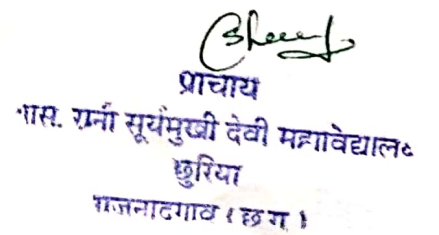 प्राचाय
शास. रानी सूर्यमुखी देवी महाविद्यालय
छुरिया
राजनांदगांव (छ ग )